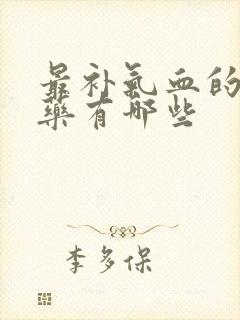 最补气血的
药有哪些
李多保